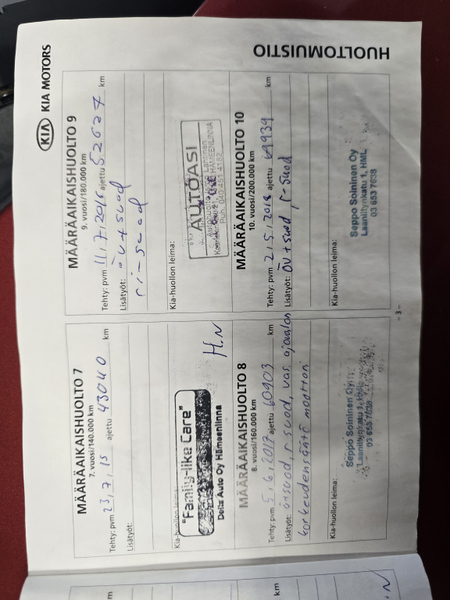 KIA KIA MOTORS
HUOLTOMUISTIO
MÄÄRÄAIKAISHUOLTO 7
7. vuosi/140.000 km
Tehty: pvm 23,7,15 ajettu 43040 km
Lisätyöt:
Kia-huollon leima:
"Family-like Care"
Delta Auto Oy Hämeenlinna
H.N
MÄÄRÄAIKAISHUOLTO 8
8. vuosi/160.000 km
Tehty: pvm 5.6.2017 ajettu 60903 km
Lisätyöt: ö+suod, r-suod, vas ajovalon
korkeudensäätö moottori
Kia-huollon leima:
Seppo Soininen Oy
03 653 7638
MÄÄRÄAIKAISHUOLTO 9
9. vuosi/180.000 km
Tehty: pvm 11.7.2016 ajettu 52627 km
Lisätyöt: öv+suod
ri-suod
Kia-huollon leima:
AUTOASI
MÄÄRÄAIKAISHUOLTO 10
10. vuosi/200.000 km
Tehty: pvm 2.5.2018 ajettu 69939 km
Lisätyöt: öv+suod r-suod
Kia-huollon leima:
Seppo Soininen Oy
Laaniitynkatu 1, HML
03 653 7638
- 3 -